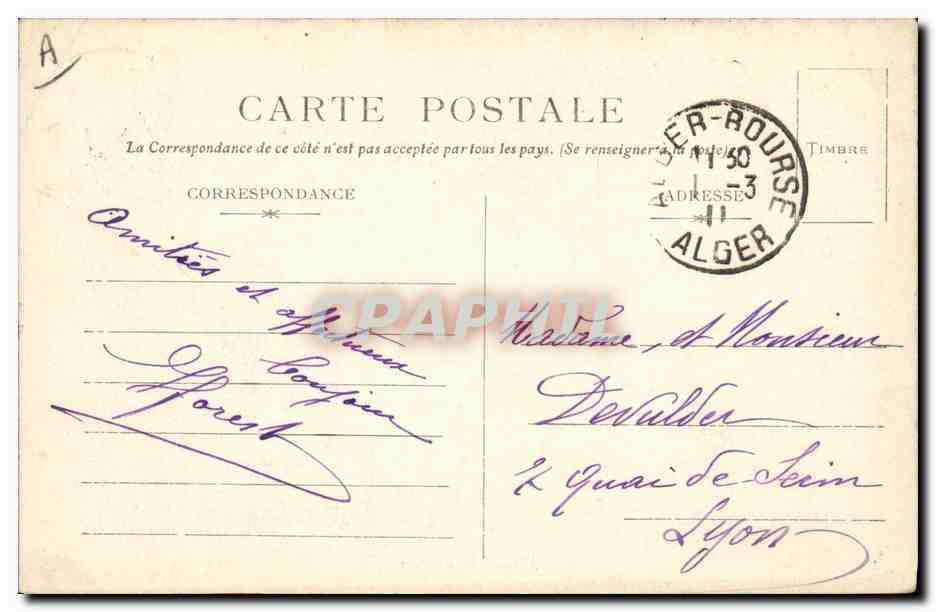 A
CARTE POSTALE
La Correspondance de ce côté n'est pas acceptée par tous les pays. (Se renseigner à la poste)
TIMBRE
CORRESPONDANCE
ADRESSE
ALGER-BOURSE
11 30
1 -3
11
ALGER
Amitiés
et affectueux
bonjour
Forest
CPAPHIL
Madame et Monsieur
Devulder
2 Quai de
Lyon